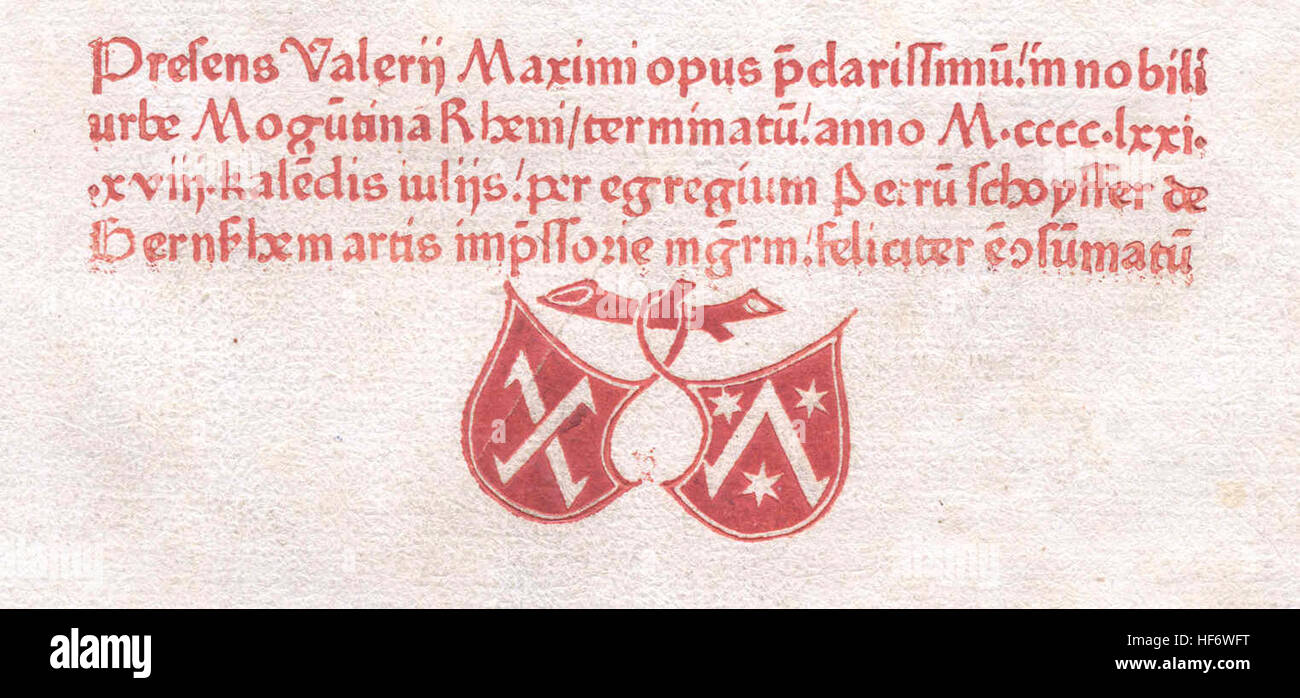 Presens Valerij Maximi opus p̄clarissimū! in nobili
urbe Mogūtina Rheni/terminatū! anno M·cccc·lxxi·
·xviij·kalēdis iulijs! per egregium Petrū schoysser de
Gernsʒhem artis imp̄ssorie mgr̄m! feliciter ē ↄsūmatū
alamy
alamy
Image ID: HF6WFT
www.alamy.com